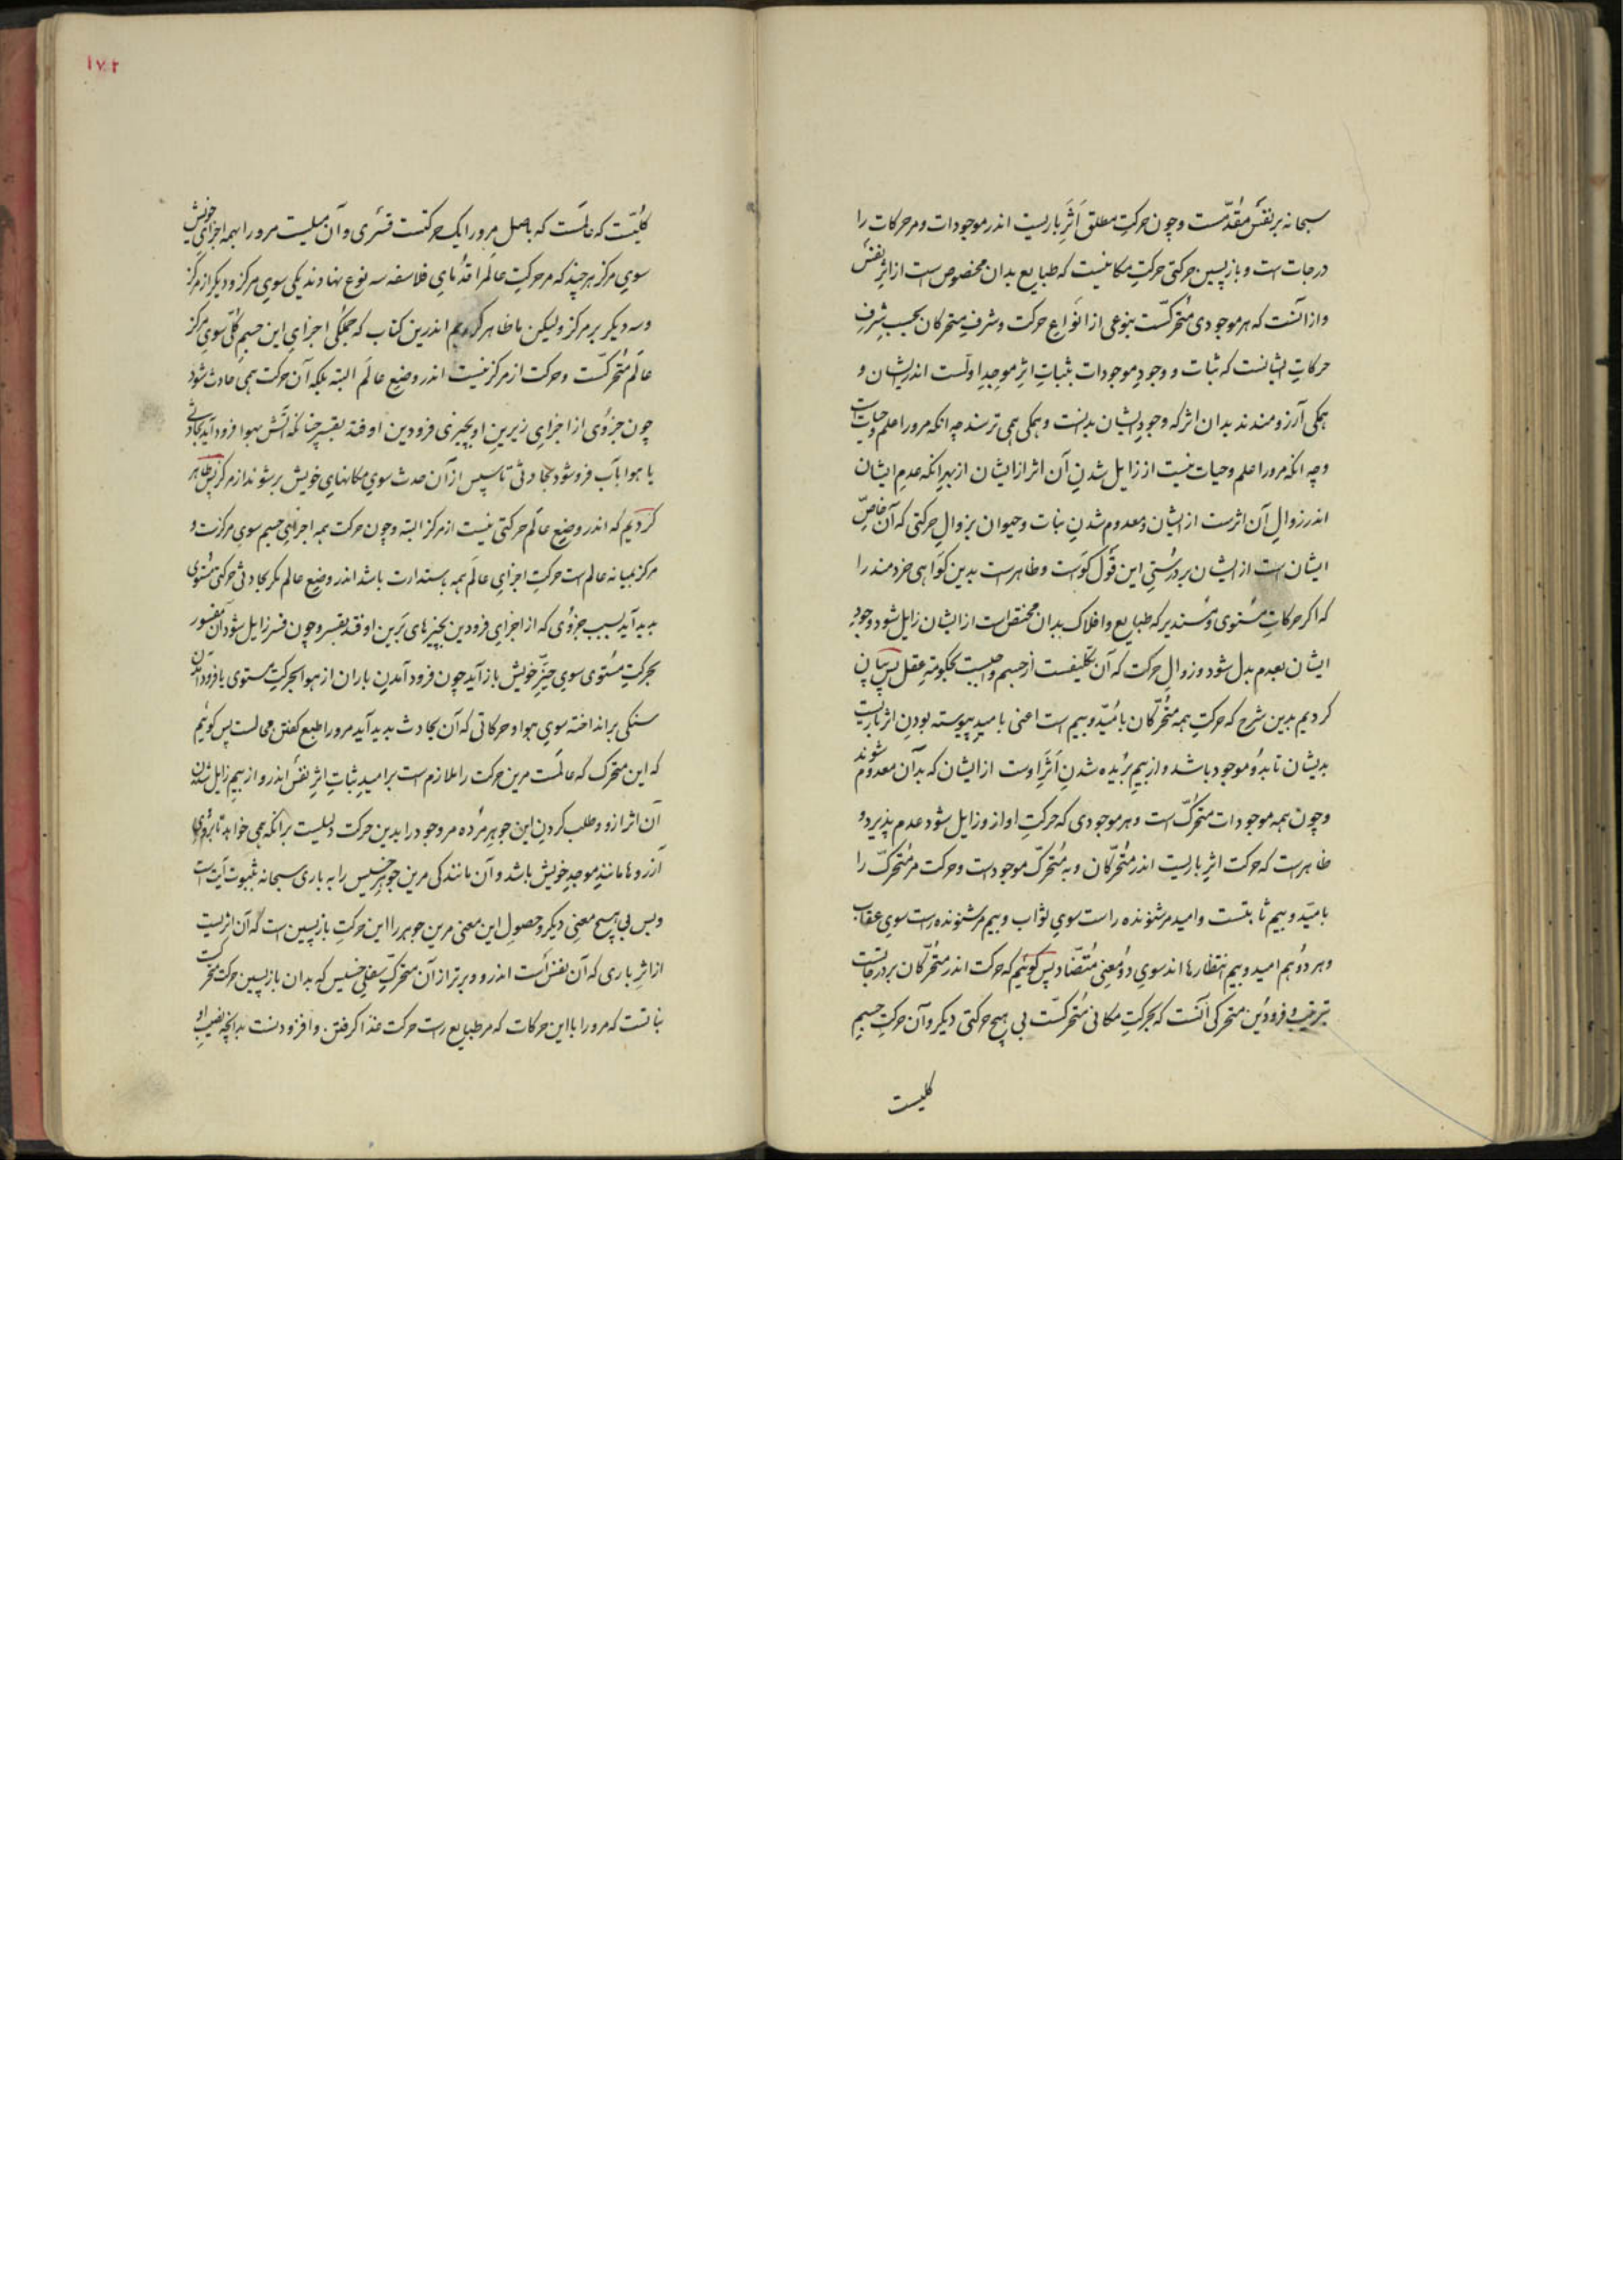 سبحانه بر نفس مقدّمست و چون حرکتِ مطلق اَثَرِ باریست اندر موجودات و مر حرکات را
درجات است و بازپسین حرکتی حرکتِ مکانیست که طبایع بدان مخصوص است از اثرِ نفس
و از آنست که هر موجودی متحرّکست بنوعی از انواعِ حرکت و شرفِ متحرکان بحسبِ شرفِ
حرکاتِ ایشانست که ثبات و وجودِ موجودات بثباتِ اثرِ موجِدِ اوّلست اندر ایشان و
همگی آرزومندند بدان اثر که وجودِ ایشان بدانست و همگی همی ترسند چه آنکه مرورا علم و حیات است
و چه آنکه مرورا علم و حیات نیست از زایل شدنِ آن اثر از ایشان از بهرِ آنکه عدمِ ایشان
اندر زوالِ آن اثرست از ایشان و معدوم شدنِ نبات و حیوان بزوالِ حرکتی که آن خاصّ
ایشان است از ایشان بر درستیِ این قول گواست و ظاهرست بدین گواهی خردمند را
که اگر حرکاتِ مستوی و مستدیر که طبایع و افلاک بدان مختصّ است از ایشان زایل شود وجودِ
ایشان بعدم بدل شود و زوالِ حرکت که آن تکلیفست از جسم واجبست بحکومتِ عقل پس بیان
کردیم بدین شرح که حرکتِ همه متحرّکان بامّید و بیم است اعنی بامیدِ پیوسته بودنِ اثرِ باریست
بدیشان تا بدو موجود باشد و از بیمِ بُریده شدنِ اَثَرِ اوست از ایشان که بدان معدوم شوند
و چون همه موجودات متحرّک است و هر موجودی که حرکتِ او ازو زایل شود عدم پذیرد و
ظاهرست که حرکت اثرِ باریست اندر متحرّکان و به متحرّک موجودست و حرکت مر متحرّک را
بامیّد و بیم ثابتست و امید مر شنونده راست سوی ثواب و بیم مر شنونده راست سوی عقاب
و هر دو هم امید و بیم انتظارها اند سوی دو معنیِ متضّاد پس گوئیم که حرکت اندر متحرّکان بر درجاتست
بترتیب و فرودین متحرکی آنست که بحرکتِ مکانی متحرکست بی هیچ حرکتی دیگر و آن حرکتِ جسمِ
کلیست
۱۷۲
کلیّت که عالمست که باصل مرورا یک حرکتست قسری و آن میلیست مرورا بهمه اجزای خویش
سوی مرکز هر چند که مر حرکتِ عالم را قدمایِ فلاسفه سه نوع نهادند یکی سوی مرکز و دیگر از مرکز
و سه دیگر بر مرکز ولیکن ما ظاهر کردیم اندرین کتاب که جملگی اجزایِ این جسمِ کلّ سوی مرکزِ
عالم متحرکست و حرکت از مرکز نیست اندر وضعِ عالم البته بلکه آن حرکت همی حادث شود
چون جزوی از اجزایِ زیرینِ او بچیزی فرودین اوفتد بقسر چنانکه آتش بهوا فرود آید بحادثی
یا هوا بآب فرو شود بحادثی تا سپس از آن حدث سوی مکانهایِ خویش بر شوند از مرکز پس ظاهر
کردیم که اندر وضعِ عالم حرکتی نیست از مرکز البته و چون حرکت همه اجزایِ جسم سوی مرکزست و
مرکز میانه عالم است حرکتِ اجزایِ عالم همه باستدارت باشد اندر وضعِ عالم مگر بحادثی حرکتی مستوی
پدید آید بسببِ جزوی که از اجزایِ فرودین بچیزهای برین اوفتد بقسر و چون قسر زایل شود آن مقسور
بحرکتِ مستوی سوی حیّزِ خویش باز آید چون فرود آمدنِ باران از هوا بحرکتِ مستوی یا فرود آمدن
سنگی بر انداخته سوی هوا و حرکاتی که آن بحادث پدید آید مرورا طبع گفتن محالست پس گوئیم
که این متحرک که عالمست مرین حرکت را ملازم است بر امیدِ ثباتِ اثرِ نفس اندرو و از بیمِ زایل شدن
آن اثر ازو و طلب کردنِ این جوهرِ مرده مر وجود را بدین حرکت دلیلست بر آنکه همی خواهد تا بروی
آرزوها مانندِ موجِدِ خویش باشد و آن مانندگی مرین جوهرِ خسیس را به باری سبحانه بثبوت آیت است
و بس بی هیچ معنی دیگر و حصولِ این معنی مرین جوهر را این حرکتِ بازپسین است که آن اثریست
از اثرِ باری که آن نفس است اندرو و برتر از آن متحرکِ سفلیِ خسیس که بدان بازپسین حرکت متحرکست
نباتست که مرورا با این حرکات که مر طبایع راست حرکت غذا گرفتن و افزودنست بدانچه نصیبِ او